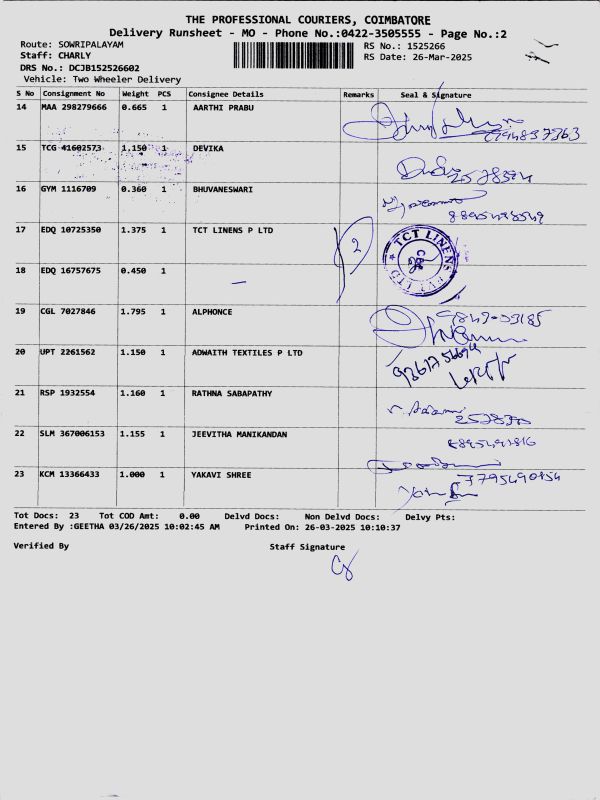 THE PROFESSIONAL COURIERS, COIMBATORE
Delivery Runsheet - MO - Phone No.:0422-3505555 - Page No.:2
Route: SOWRIPALAYAM RS No.: 1525266
Staff: CHARLY RS Date: 26-Mar-2025
DRS No.: DCJB152526602
Vehicle: Two Wheeler Delivery
S No Consignment No Weight PCS Consignee Details Remarks Seal & Signature
14 MAA 298279666 0.665 1 AARTHI PRABU
15 TCG 41602573 1.150 1 DEVIKA
16 GYM 1116709 0.360 1 BHUVANESWARI
17 EDQ 10725350 1.375 1 TCT LINENS P LTD
2
TCT LINENS PVT LTD
18 EDQ 16757675 0.450 1
19 CGL 7027846 1.795 1 ALPHONCE
20 UPT 2261562 1.150 1 ADWAITH TEXTILES P LTD
21 RSP 1932554 1.160 1 RATHNA SABAPATHY
22 SLM 367006153 1.155 1 JEEVITHA MANIKANDAN
23 KCM 13366433 1.000 1 YAKAVI SHREE
Tot Docs: 23 Tot COD Amt: 0.00 Delvd Docs: Non Delvd Docs: Delvy Pts:
Entered By :GEETHA 03/26/2025 10:02:45 AM Printed On: 26-03-2025 10:10:37
Verified By Staff Signature